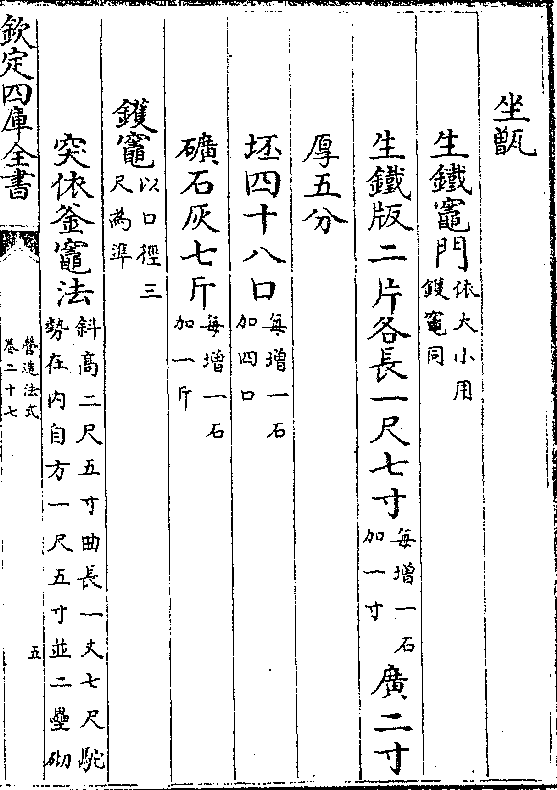 坐甑
生鐵竈門依大小用鑊竈同
生鐵版二片各長一尺七寸每增一石加一寸廣二寸
厚五分
坯四十八口每增一石加四口
礦石灰七斤每增一石加一斤
鑊竈以口徑三尺為準
突依釜竈法斜高二尺五寸曲長一丈七尺駝勢在内自方一尺五寸並二壘砌
欽定四庫全書
營造法式
卷二十七
五